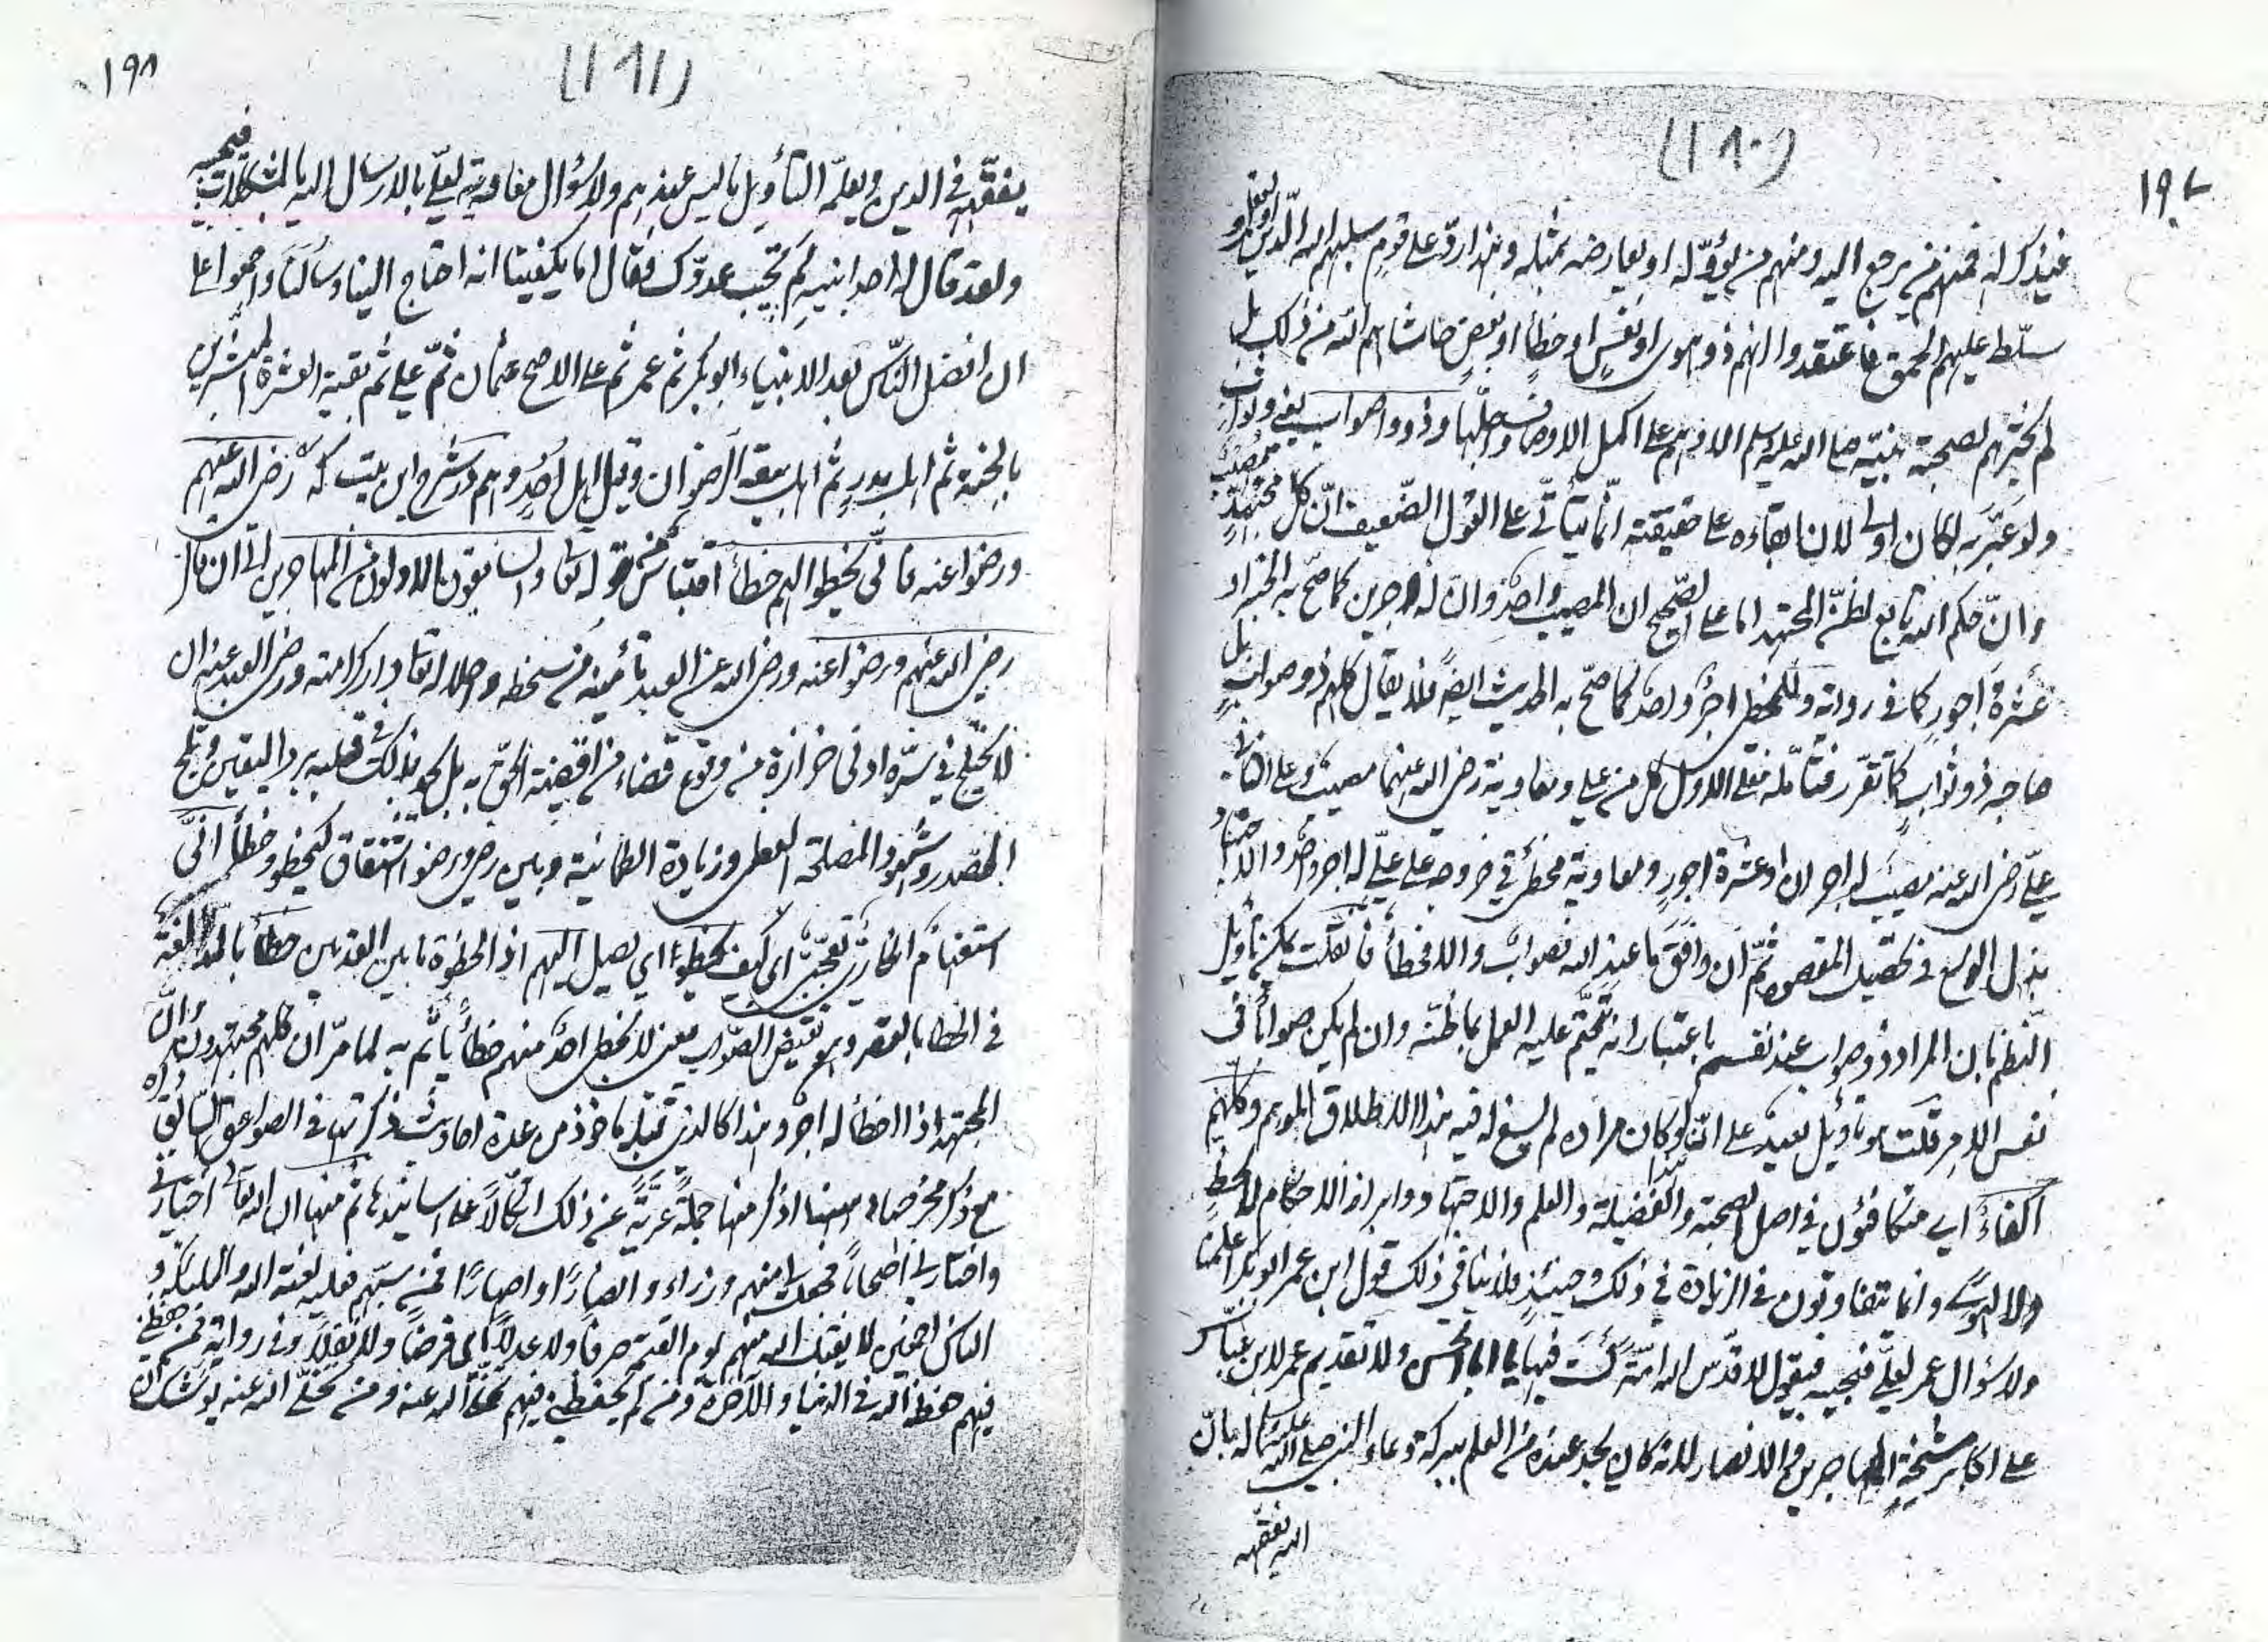 (١٨٠)
١٩٧
فيذكر له فمنهم من يرجع اليه ومنهم من يؤوّله او يعارضه بمثله وهذا ردّ على قوم سلبهم الله الدين
سلّط عليهم الحمق فاعتقدوا انهم ذوو هوى او نفس او خطأ او نقص حاشاهم الله من ذلك بل
لم يخترهم لصحبة نبيّه صلى الله عليه وسلم الا وهم على اكمل الاوصاف واجلّها وذوو اصواب يعني وثواب
ولو عبّر به لكان اولى لان ابقاءه على حقيقته انّما يتأتّى على القول الضّعيف انّ كل مجتهد مصيب
وانّ حكم الله تابع لظنّ المجتهد اما على الصّحيح ان المصيب واحد وان له اجرين كما صحّ به الخبر او
عشرة اجور كما في رواية وللمخطئ اجر واحد كما صحّ به الحديث ايضًا فلا يقال كلهم ذوو صواب بل
صاحبه ذو ثواب كما تقرر فتأمّله فعلى الاول كل من علي ومعاوية رضي الله عنهما مصيب وعلى الثاني
عليّ رضي الله عنه مصيب له اجران او عشرة اجور ومعاوية مخطئ في خروجه على عليّ له اجر واحد والاجتهاد
بذل الوسع في تحصيل المقصود ثمّ ان وافق ما عند الله فصواب والا فخطأ فان قلت يمكن تأويل
النظم بان المراد ذوو صواب عند نفسه باعتبار انه تحتّم عليه العمل بما ظنّه وان لم يكن صوابا في
نفس الامر قلت هو تأويل بعيد على انّه لو كان مراده لم يسغ له فيه هذا الاطلاق الموهم وكلّهم
اكفاء اي متكافئون في اصل الصحبة والفضيلة والعلم والاجتهاد وابراز الاحكام لا لحظ
ولا لهوى وانما يتفاوتون في الزيادة في ذلك وحينئذ فلا ينافي ذلك قول ابن عمر ابو بكر اعلمنا
ولا سؤال عمر لعليّ فيجيبه فيقول لا قدّس الله امّة لست فيها يا ابا الحسن ولا تقديم عمر لابن عباس
على اكابر مشيخة المهاجرين والانصار لانه كان يجد عنده من العلم ببركة دعاء النبي صلى الله عليه وسلم له بانّ
الله يفقهه
(١٨١)
١٩٨
يفقّهه في الدين ويعلّمه التأويل ما ليس عندهم ولا سؤال معاوية لعليّ بالارسال اليه بالمشكلات فيجيبه
ولقد قال له احد ابنيه لم تجيب عدوّك فقال اما يكفينا انه احتاج الينا وسألنا واجمعوا على
ان افضل النّاس بعد الانبياء ابو بكر ثم عمر ثم على الاصح عثمان ثمّ علي ثم بقية العشرة المبشرين
بالجنة ثم اهل بدر ثم اهل بيعة الرّضوان وقبل اهل اُحُد وهم در شرح اين بيت كه رضي الله عنهم
ورضوا عنه فانّى يخطوا اليهم خطأ اقتباس من قوله تعالى والسابقون الاولون من المهاجرين الى ان قال
رضي الله عنهم ورضوا عنه ورضى الله عن العبد تأمينه من سخطه واحلاله تعالى دار كرامته ورضى العبد عنه ان
لا يختلج في سرّه ادنى حزازة من وقوع قضاء من اقضية الحقّ به بل يجد لذلك في قلبه برد اليقين وثلج
الصّدر وشهود المصلحة العظمى وزيادة الطمانينة وبين رضي ورضوا اشتقاق كيخطو وخطأ انّى
استفهام انكاريّ تعجّبيّ اي كيف يخطوا اي يصل اليهم اذ الخطوة ما بين القدمين خطأ بالمد لغة
في الخطا بالقصر وهو نقيض الصّواب معنى لا يخطى احد منهم خطأ يأثم به لما مرّ ان كلهم مجتهدون وانّ
المجتهد اذا اخطأ له اجر وهذا كالذي قبله ماخوذ من عدة احاديث ذكرتها في الصواعق السّابق ذكره
مع ذكر مخرجها وهنا اذكر منها جملة عريّة عن ذلك اتّكالًا على اسانيدها ثم منها ان الله تعالى اختارني
واختار لي اصحابًا فجعل لي منهم وزراء وانصارًا او اصهارًا فمن سبّهم فعليه لعنة الله والملئكة و
الناس اجمعين لا يقبل الله منهم يوم القيمة صرفًا ولا عدلًا اي فرضًا ولا نفلًا وفي رواية فمن حفظني
فيهم حفظه الله في الدنيا والآخرة ومن لم يحفظني فيهم تخلّى الله عنه ومن تخلّى الله عنه يوشك ان